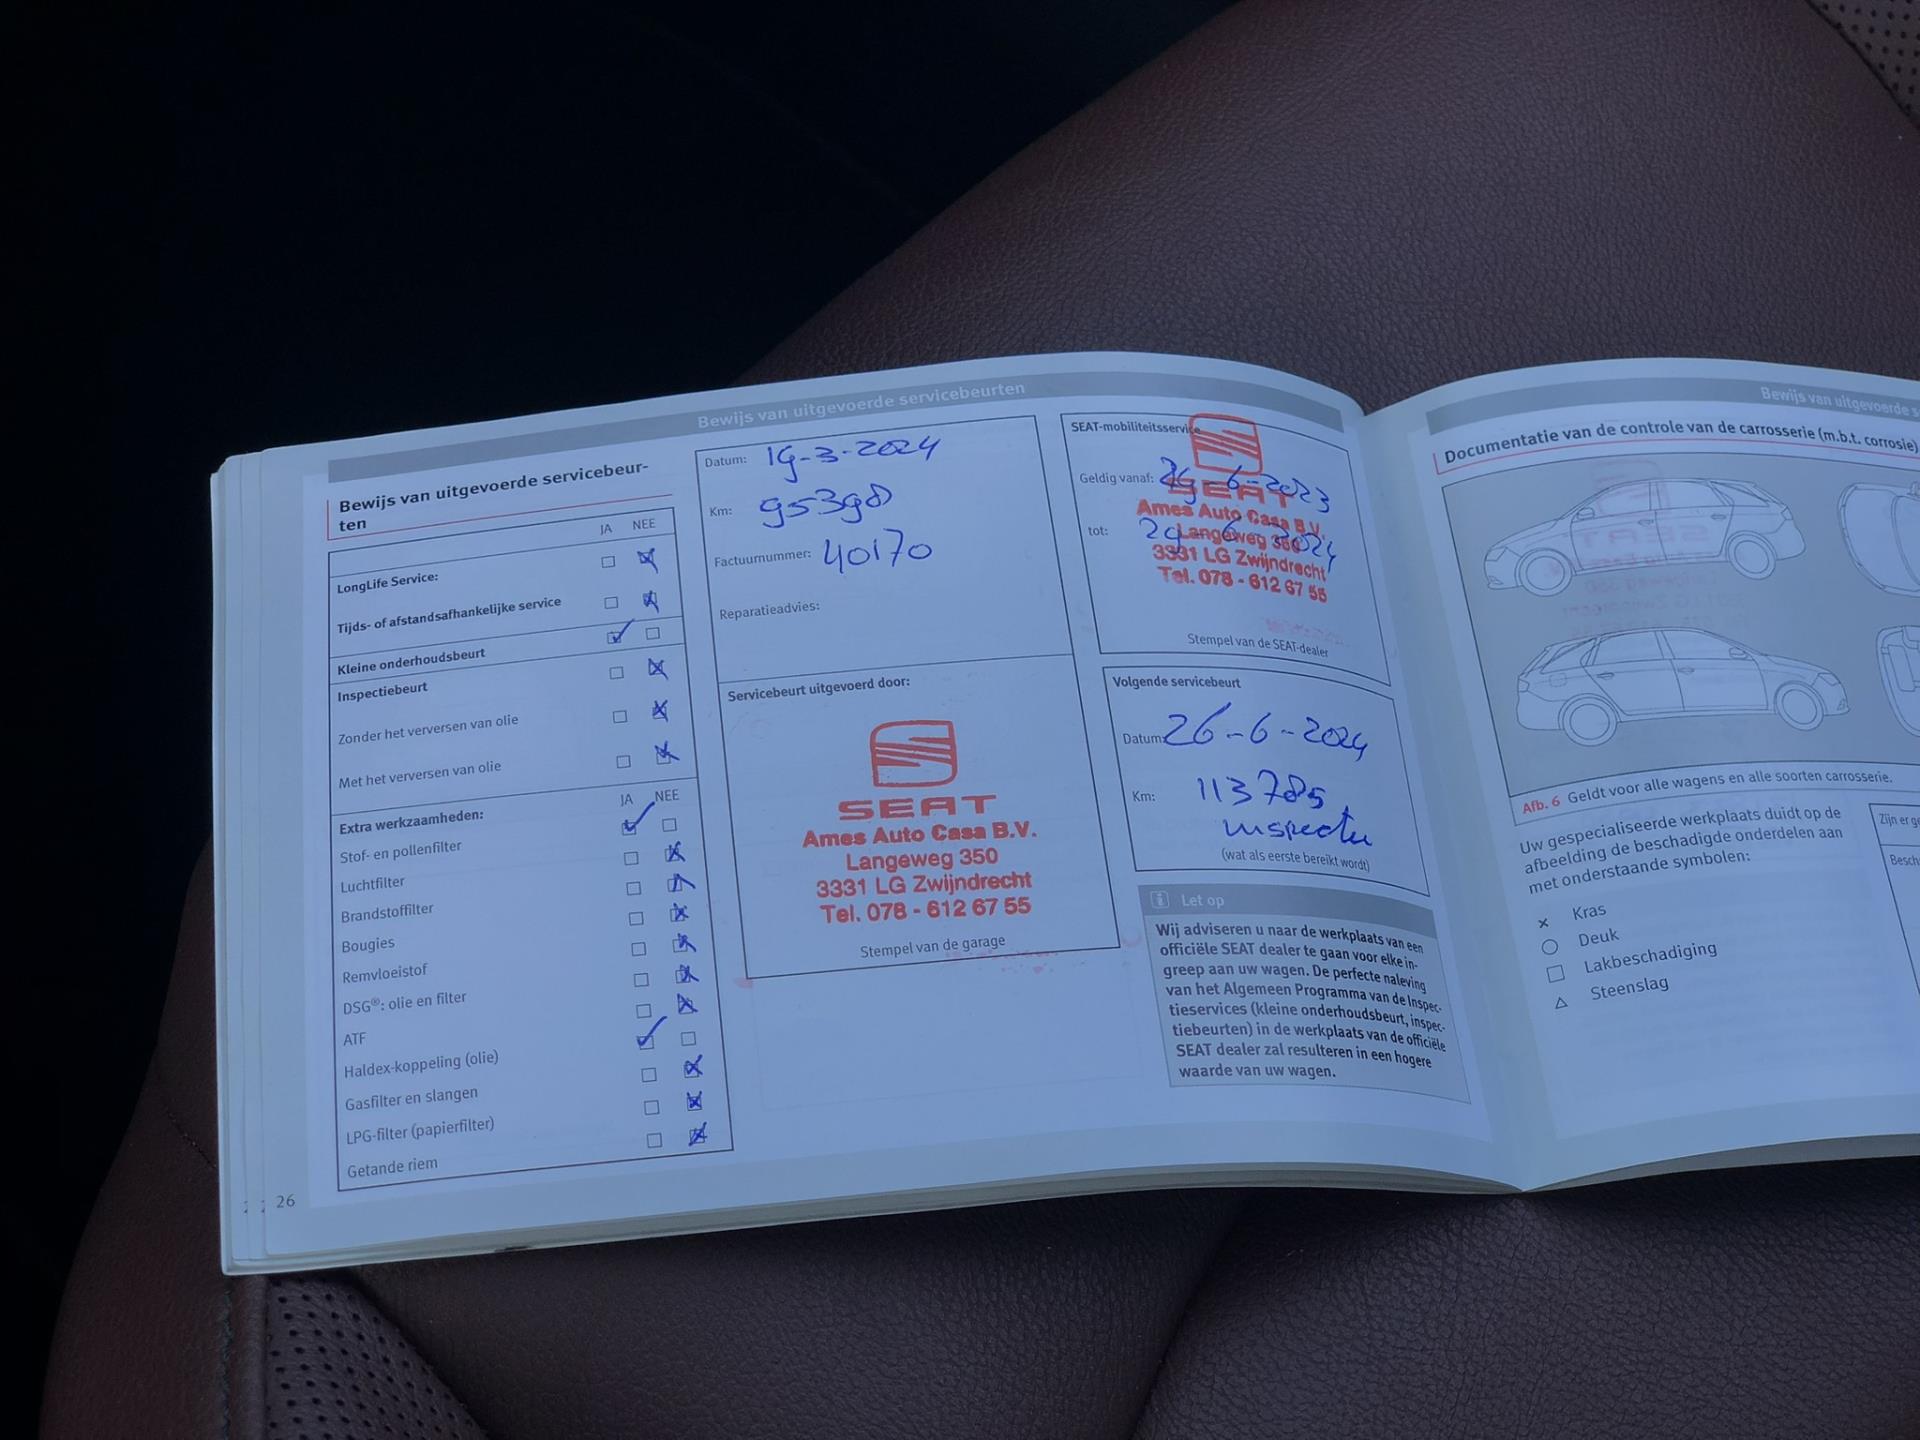 Bewijs van uitgevoerde servicebeurten
Bewijs van uitgevoerde servicebeur-
ten
JA NEE
LongLife Service:
Tijds- of afstandsafhankelijke service
Kleine onderhoudsbeurt
Inspectiebeurt
Zonder het verversen van olie
Met het verversen van olie
Extra werkzaamheden: JA NEE
Stof- en pollenfilter
Luchtfilter
Brandstoffilter
Bougies
Remvloeistof
DSG®: olie en filter
ATF
Haldex-koppeling (olie)
Gasfilter en slangen
LPG-filter (papierfilter)
Getande riem
26
Datum: 19-3-2024
Km: 95398
Factuurnummer: 40170
Reparatieadvies:
Servicebeurt uitgevoerd door:
SEAT
Ames Auto Casa B.V.
Langeweg 350
3331 LG Zwijndrecht
Tel. 078 - 612 67 55
Stempel van de garage
SEAT-mobiliteitsservice
Geldig vanaf: 29-6-2023
tot: 29 6 2024
SEAT
Ames Auto Casa B.V.
Langeweg 350
3331 LG Zwijndrecht
Tel. 078 - 612 67 55
Stempel van de SEAT-dealer
Volgende servicebeurt
Datum: 26-6-2024
Km: 113785
inspectie
(wat als eerste bereikt wordt)
i Let op
Wij adviseren u naar de werkplaats van een
officiële SEAT dealer te gaan voor elke in-
greep aan uw wagen. De perfecte naleving
van het Algemeen Programma van de Inspec-
tieservices (kleine onderhoudsbeurt, inspec-
tiebeurten) in de werkplaats van de officiële
SEAT dealer zal resulteren in een hogere
waarde van uw wagen.
Bewijs van uitgevoerde s
Documentatie van de controle van de carrosserie (m.b.t. corrosie)
Afb. 6 Geldt voor alle wagens en alle soorten carrosserie.
Uw gespecialiseerde werkplaats duidt op de
afbeelding de beschadigde onderdelen aan
met onderstaande symbolen:
× Kras
○ Deuk
□ Lakbeschadiging
△ Steenslag
Zijn er ge
Besch